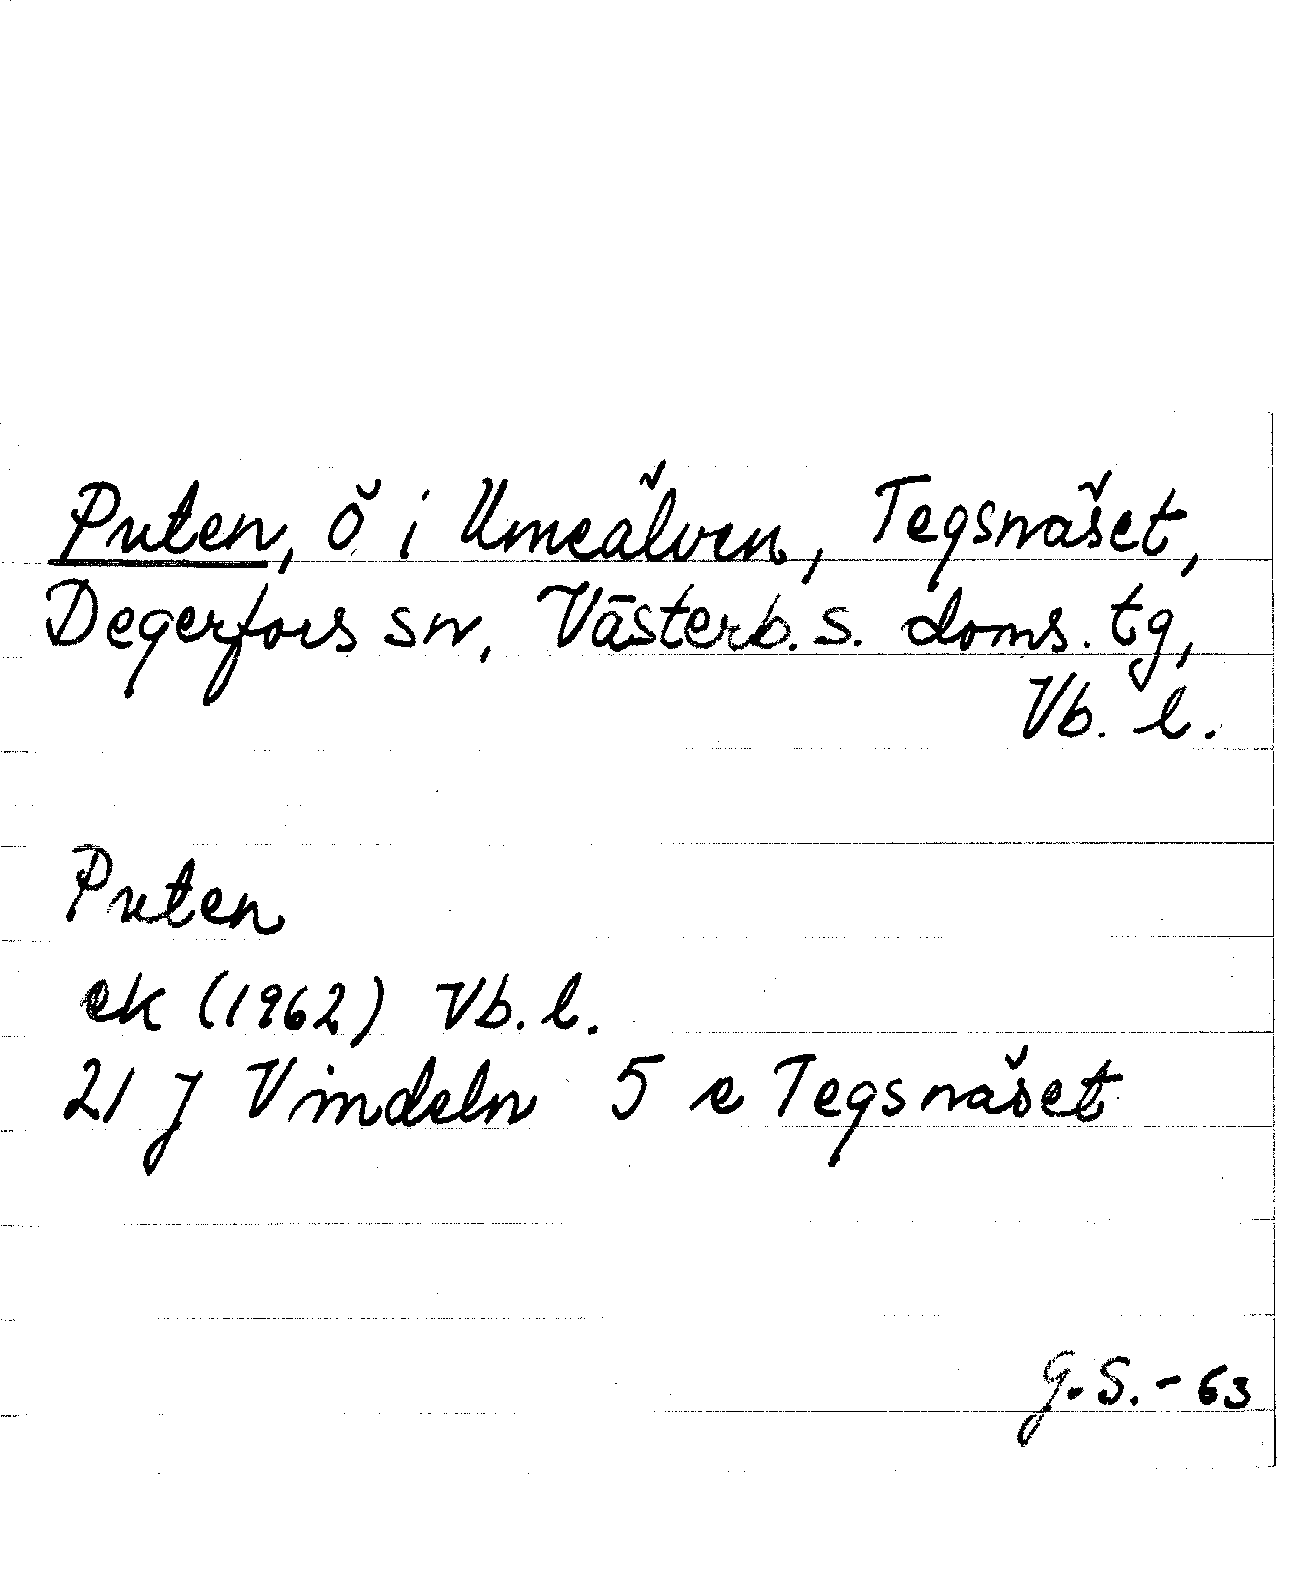 Puten, ö i Umeälven, Tegsnäset,
Degerfors sn, Västerb. s. doms. tg,
Vb. l.
Puten
ek (1962) Vb. l.
21 J Vindeln 5 e Tegsnäset
G. S. - 63